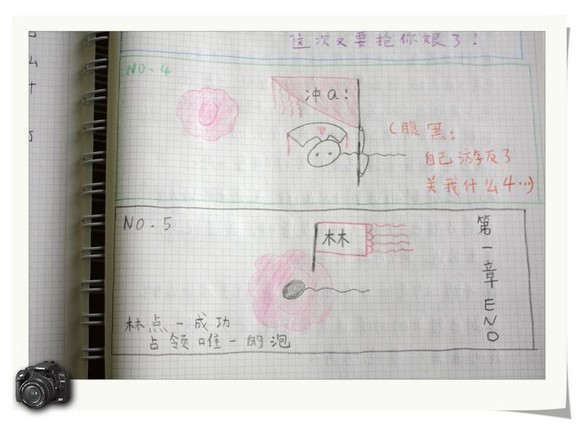 这次又要抢你娘了！
NO.4
冲a！
（腹黑：
自己游反了
关我什么4…）
NO.5
林
第一章 END
林点一成功
占领唯一的泡